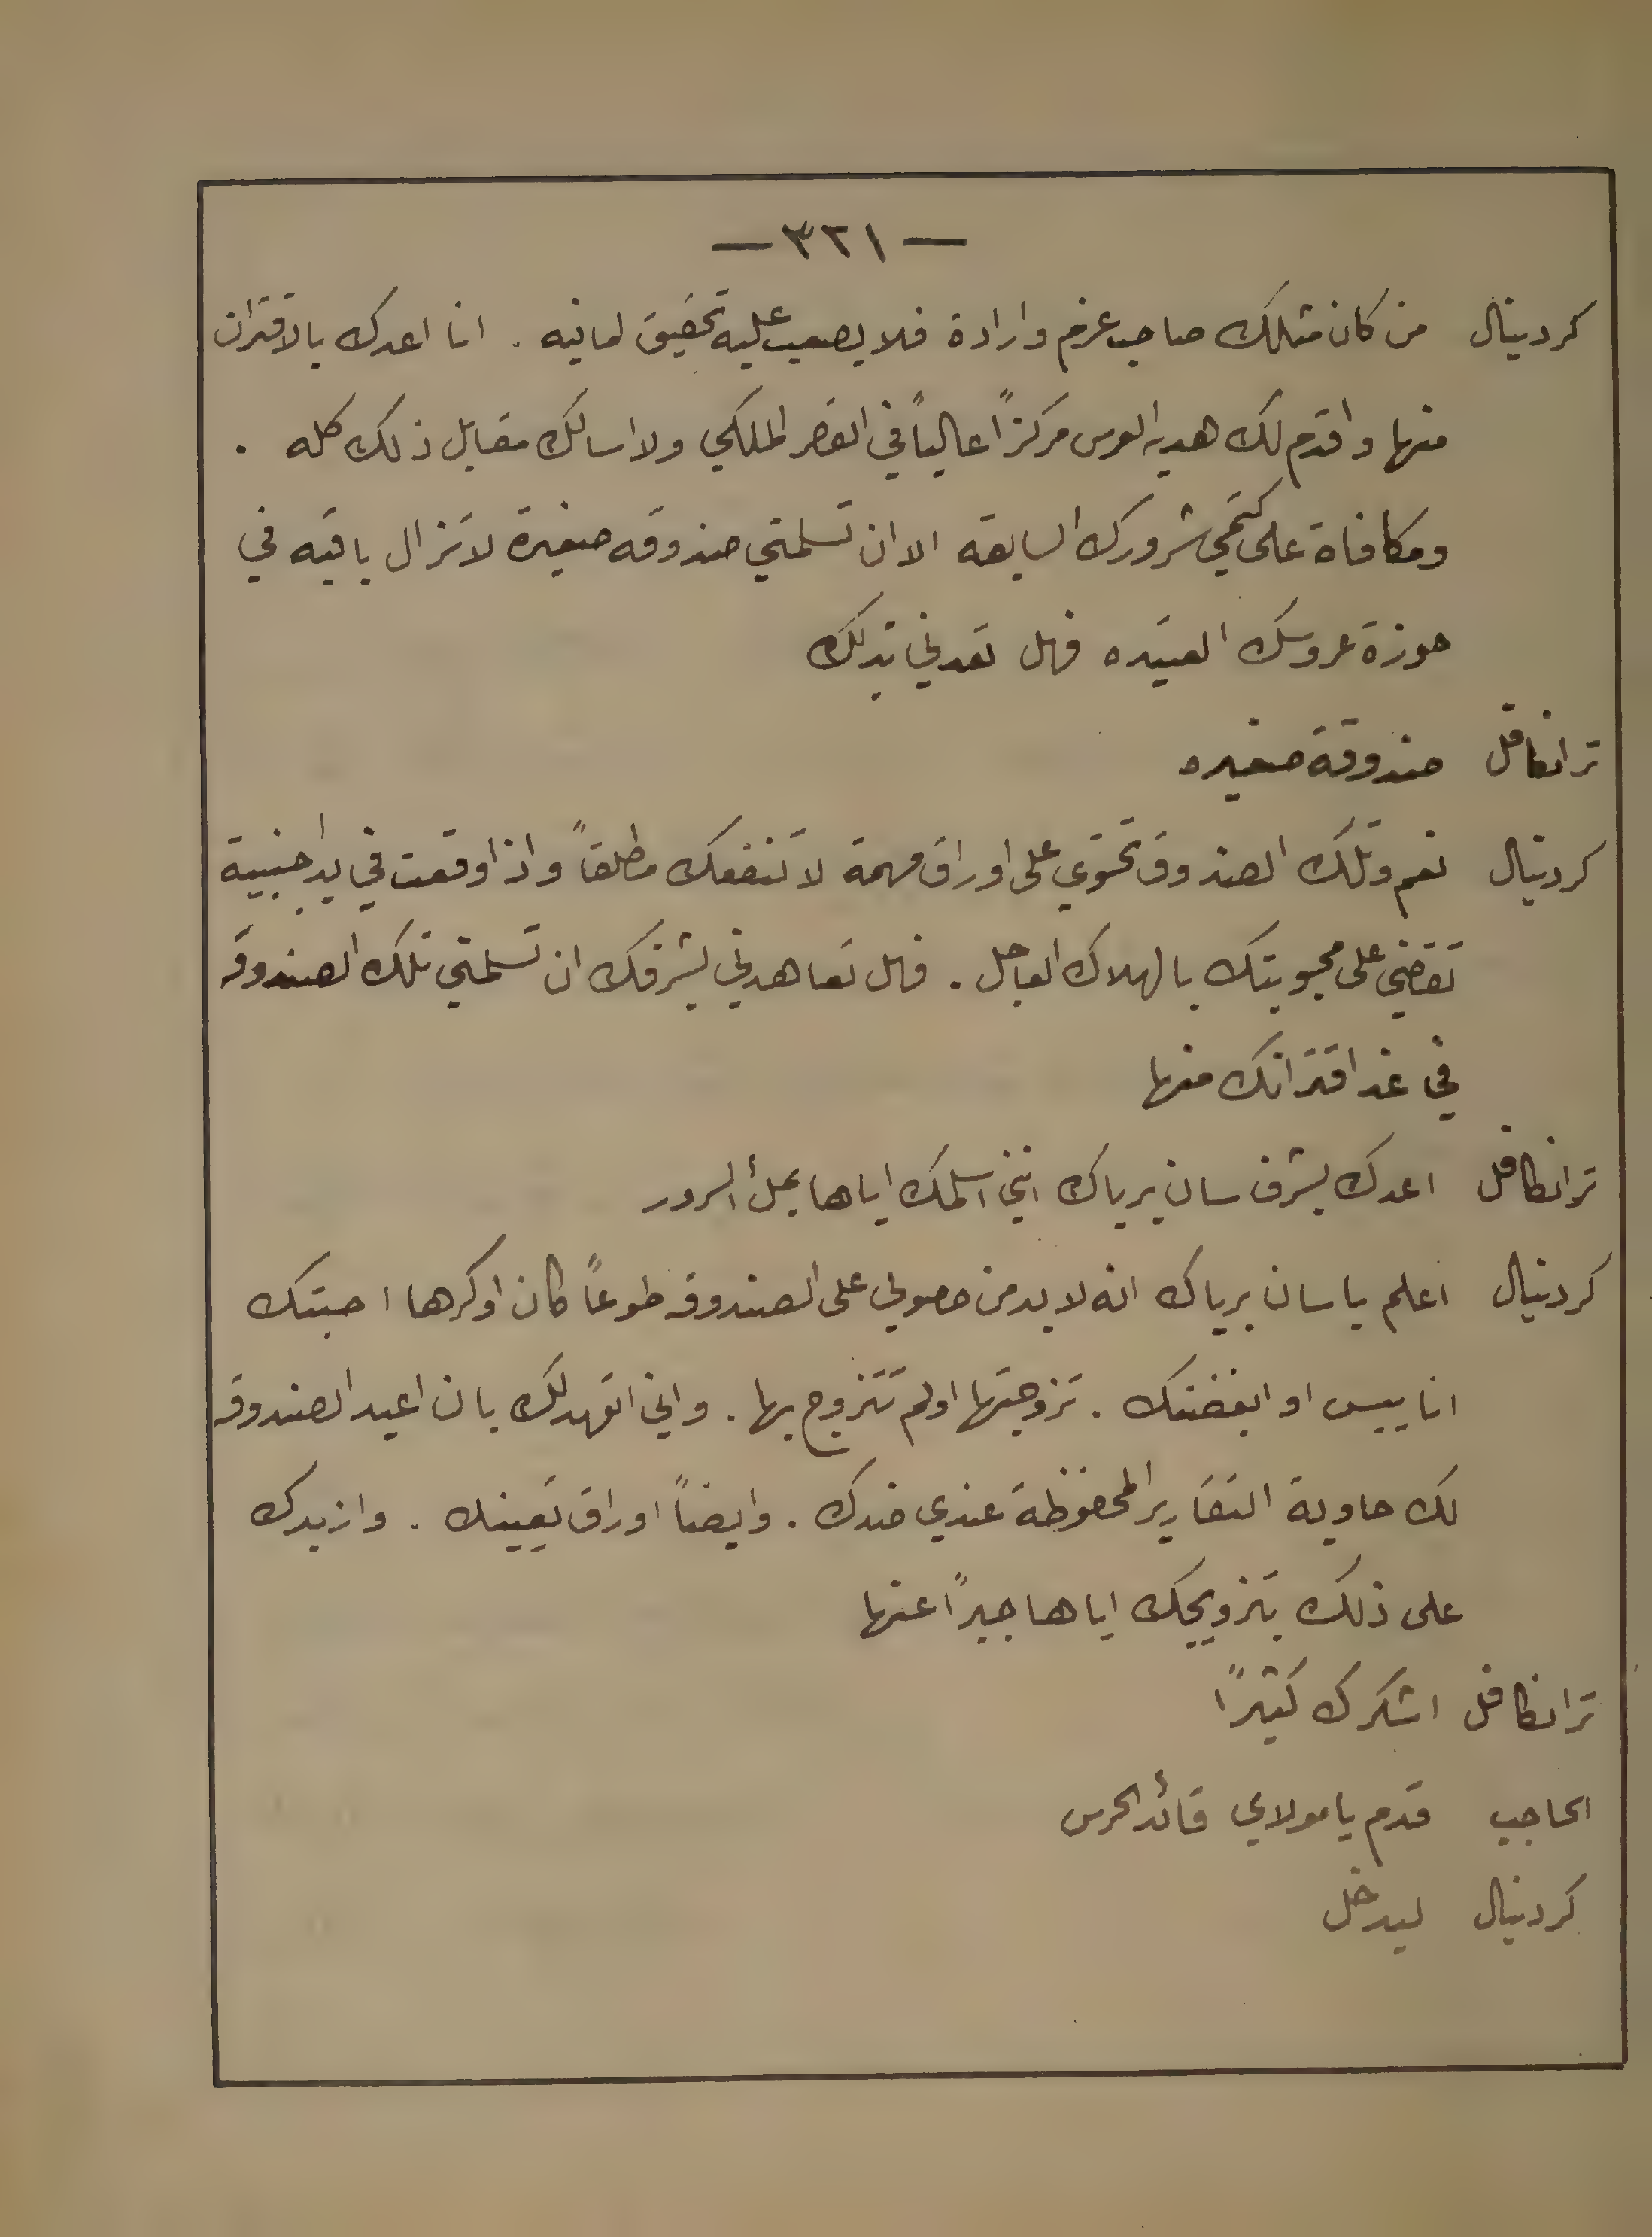 — ٣٢١ —
كردينال من كان مثلك صاحب عزم وارادة فلا يصعب عليه تحقيق امانيه . انا اعدك بالاقتران
منها واقدم لك هديه العرس مركزاً عالياً في القصر الملكي ولا اسالك مقابل ذلك كله .
ومكافاة على كتمي شرورك السابقه الا ان تسلمني صندوقه صغيرة لا تزال باقيه في
حوزة عروسك العتيده فهل تعدني بذلك
ترانكافل صندوقة صغيره
كردينال نعم وتلك الصندوق تحتوي على اوراق مهمة لا تنفعك مطلقاً واذا وقعت في يد اجنبية
تقضي على محبوبتك بالهلاك العاجل . فهل تعاهدني بشرفك ان تسلمني تلك الصندوقه
في غد اقترانك منها
ترانكافل اعدك بشرف سان برياك انني اسلمك اياها بملأ السرور
كردينال اعلم يا سان برياك انه لا بد من حصولي على الصندوقه طوعاً كان او كرها احبتك
انا بيس او ابغضتك . تزوجتها او لم تتزوج بها . واني اتعهد لك بان اعيد الصندوقه
لك حاوية التقارير المحفوظة عندي ضدك . وايضاً اوراق تعيينك . وازيدك
على ذلك بتزويجك اياها جبراً عنها
ترانكافل اشكرك كثيراً
الحاجب قدم يا مولاي قائد الحرس
كردينال ليدخل